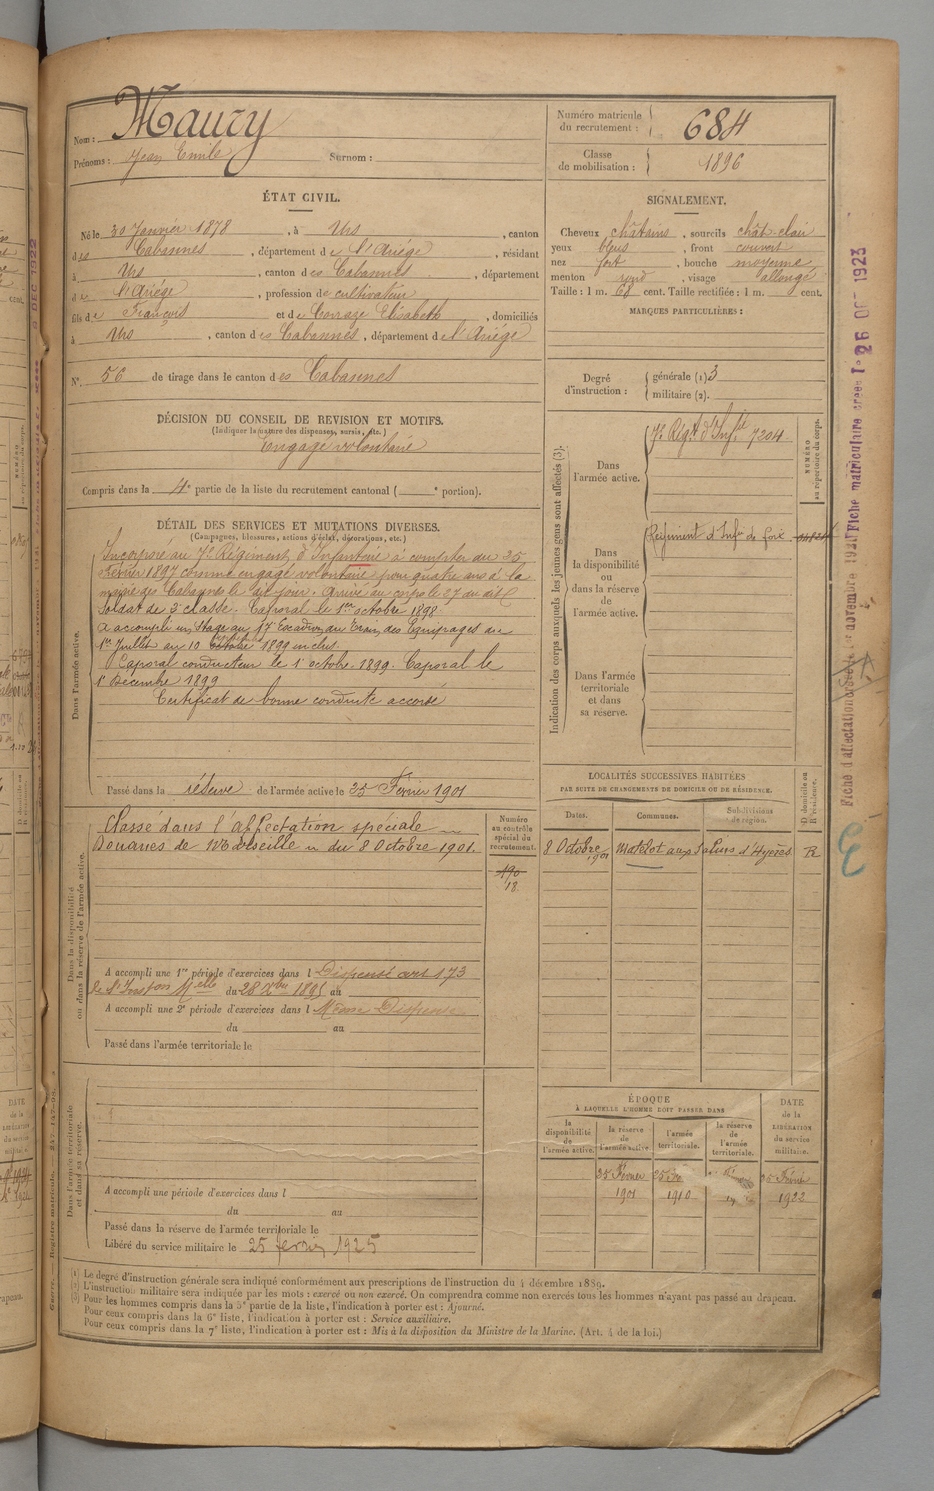 Nom : Maury
Prénoms : Jean Emile Surnom :
Numéro matricule du recrutement : 684
Classe de mobilisation : 1896
ÉTAT CIVIL.
Né le 30 Janvier 1878, à Urs, canton
des Cabannes, département de l'Ariége, résidant
à Urs, canton des Cabannes, département
de l'Ariége, profession de cultivateur
fils de François et de Corrage Elisabeth, domiciliés
à Urs, canton des Cabannes, département de l'Ariége
N° 56 de tirage dans le canton des Cabannes
SIGNALEMENT.
Cheveux châtains, sourcils chât-clair
yeux bleus, front couvert
nez fort, bouche moyenne
menton rond, visage allongé
Taille : 1 m. 68 cent. Taille rectifiée : 1 m. cent.
MARQUES PARTICULIÈRES :
Degré d'instruction : générale (1) 3
militaire (2).
DÉCISION DU CONSEIL DE REVISION ET MOTIFS.
(Indiquer la nature des dispenses, sursis, etc.)
Engagé volontaire
Compris dans la 4e partie de la liste du recrutement cantonal ( e portion).
DÉTAIL DES SERVICES ET MUTATIONS DIVERSES.
(Campagnes, blessures, actions d'éclat, décorations, etc.)
Dans l'armée active.
Incorporé au 7e Régiment d'Infanterie à compter du 25
Février 1897 comme engagé volontaire pour quatre ans à la
mairie des Cabannes le dit jour. Arrivé au corps le 27 du dit
Soldat de 2e classe. Caporal le 1er octobre 1898.
a accompli un stage au 17e Escadron du Train des Equipages du
1er Juillet au 10 Octobre 1899 inclus.
Caporal conducteur le 1er octobre 1899. Caporal le
1er Décembre 1899
Certificat de bonne conduite accordé
Passé dans la réserve de l'armée active le 25 Février 1901
Indication des corps auxquels les jeunes gens sont affectés (3).
NUMÉRO au répertoire du corps.
Dans l'armée active.
7e Régt d'Infie 7204
Dans la disponibilité ou dans la réserve de l'armée active.
Régiment d'Infie de foix
Dans l'armée territoriale et dans sa réserve.
LOCALITÉS SUCCESSIVES HABITÉES
PAR SUITE DE CHANGEMENTS DE DOMICILE OU DE RÉSIDENCE.
Dates. Communes. Subdivisions de région. D. domicile ou R. résidence.
8 Octobre 1901 Matelot aux Salins d'Hyères R
Dans la disponibilité ou dans la réserve de l'armée active.
Classé dans l'affectation spéciale
Douanes de Marseille du 8 Octobre 1901.
Numéro au contrôle spécial du recrutement.
190
18
A accompli une 1re période d'exercices dans l Dispensé art 173
de l'Inston Melle du 28 Xbre 1895 au
A accompli une 2e période d'exercices dans l Même Dispense
du au
Passé dans l'armée territoriale le
Dans l'armée territoriale et dans sa réserve.
A accompli une période d'exercices dans l
du au
Passé dans la réserve de l'armée territoriale le
Libéré du service militaire le 25 fevrier 1925
ÉPOQUE
À LAQUELLE L'HOMME DOIT PASSER DANS
la disponibilité de l'armée active.
la réserve de l'armée active.
l'armée territoriale.
la réserve de l'armée territoriale.
DATE de la LIBÉRATION du service militaire.
25 Février 1901
1910
1922
(1) Le degré d'instruction générale sera indiqué conformément aux prescriptions de l'instruction du 4 décembre 1889.
(2) L'instruction militaire sera indiquée par les mots : exercé ou non exercé. On comprendra comme non exercés tous les hommes n'ayant pas passé au drapeau.
(3) Pour les hommes compris dans la 5e partie de la liste, l'indication à porter est : Ajourné.
Pour ceux compris dans la 6e liste, l'indication à porter est : Service auxiliaire.
Pour ceux compris dans la 7e liste, l'indication à porter est : Mis à la disposition du Ministre de la Marine. (Art. 4 de la loi.)